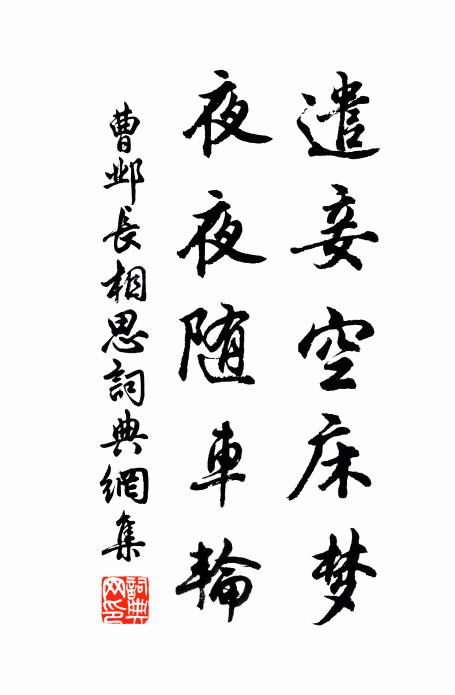 遣妾空床梦
夜夜随車輪
曹邺長相思詞典網集
詞典
网印